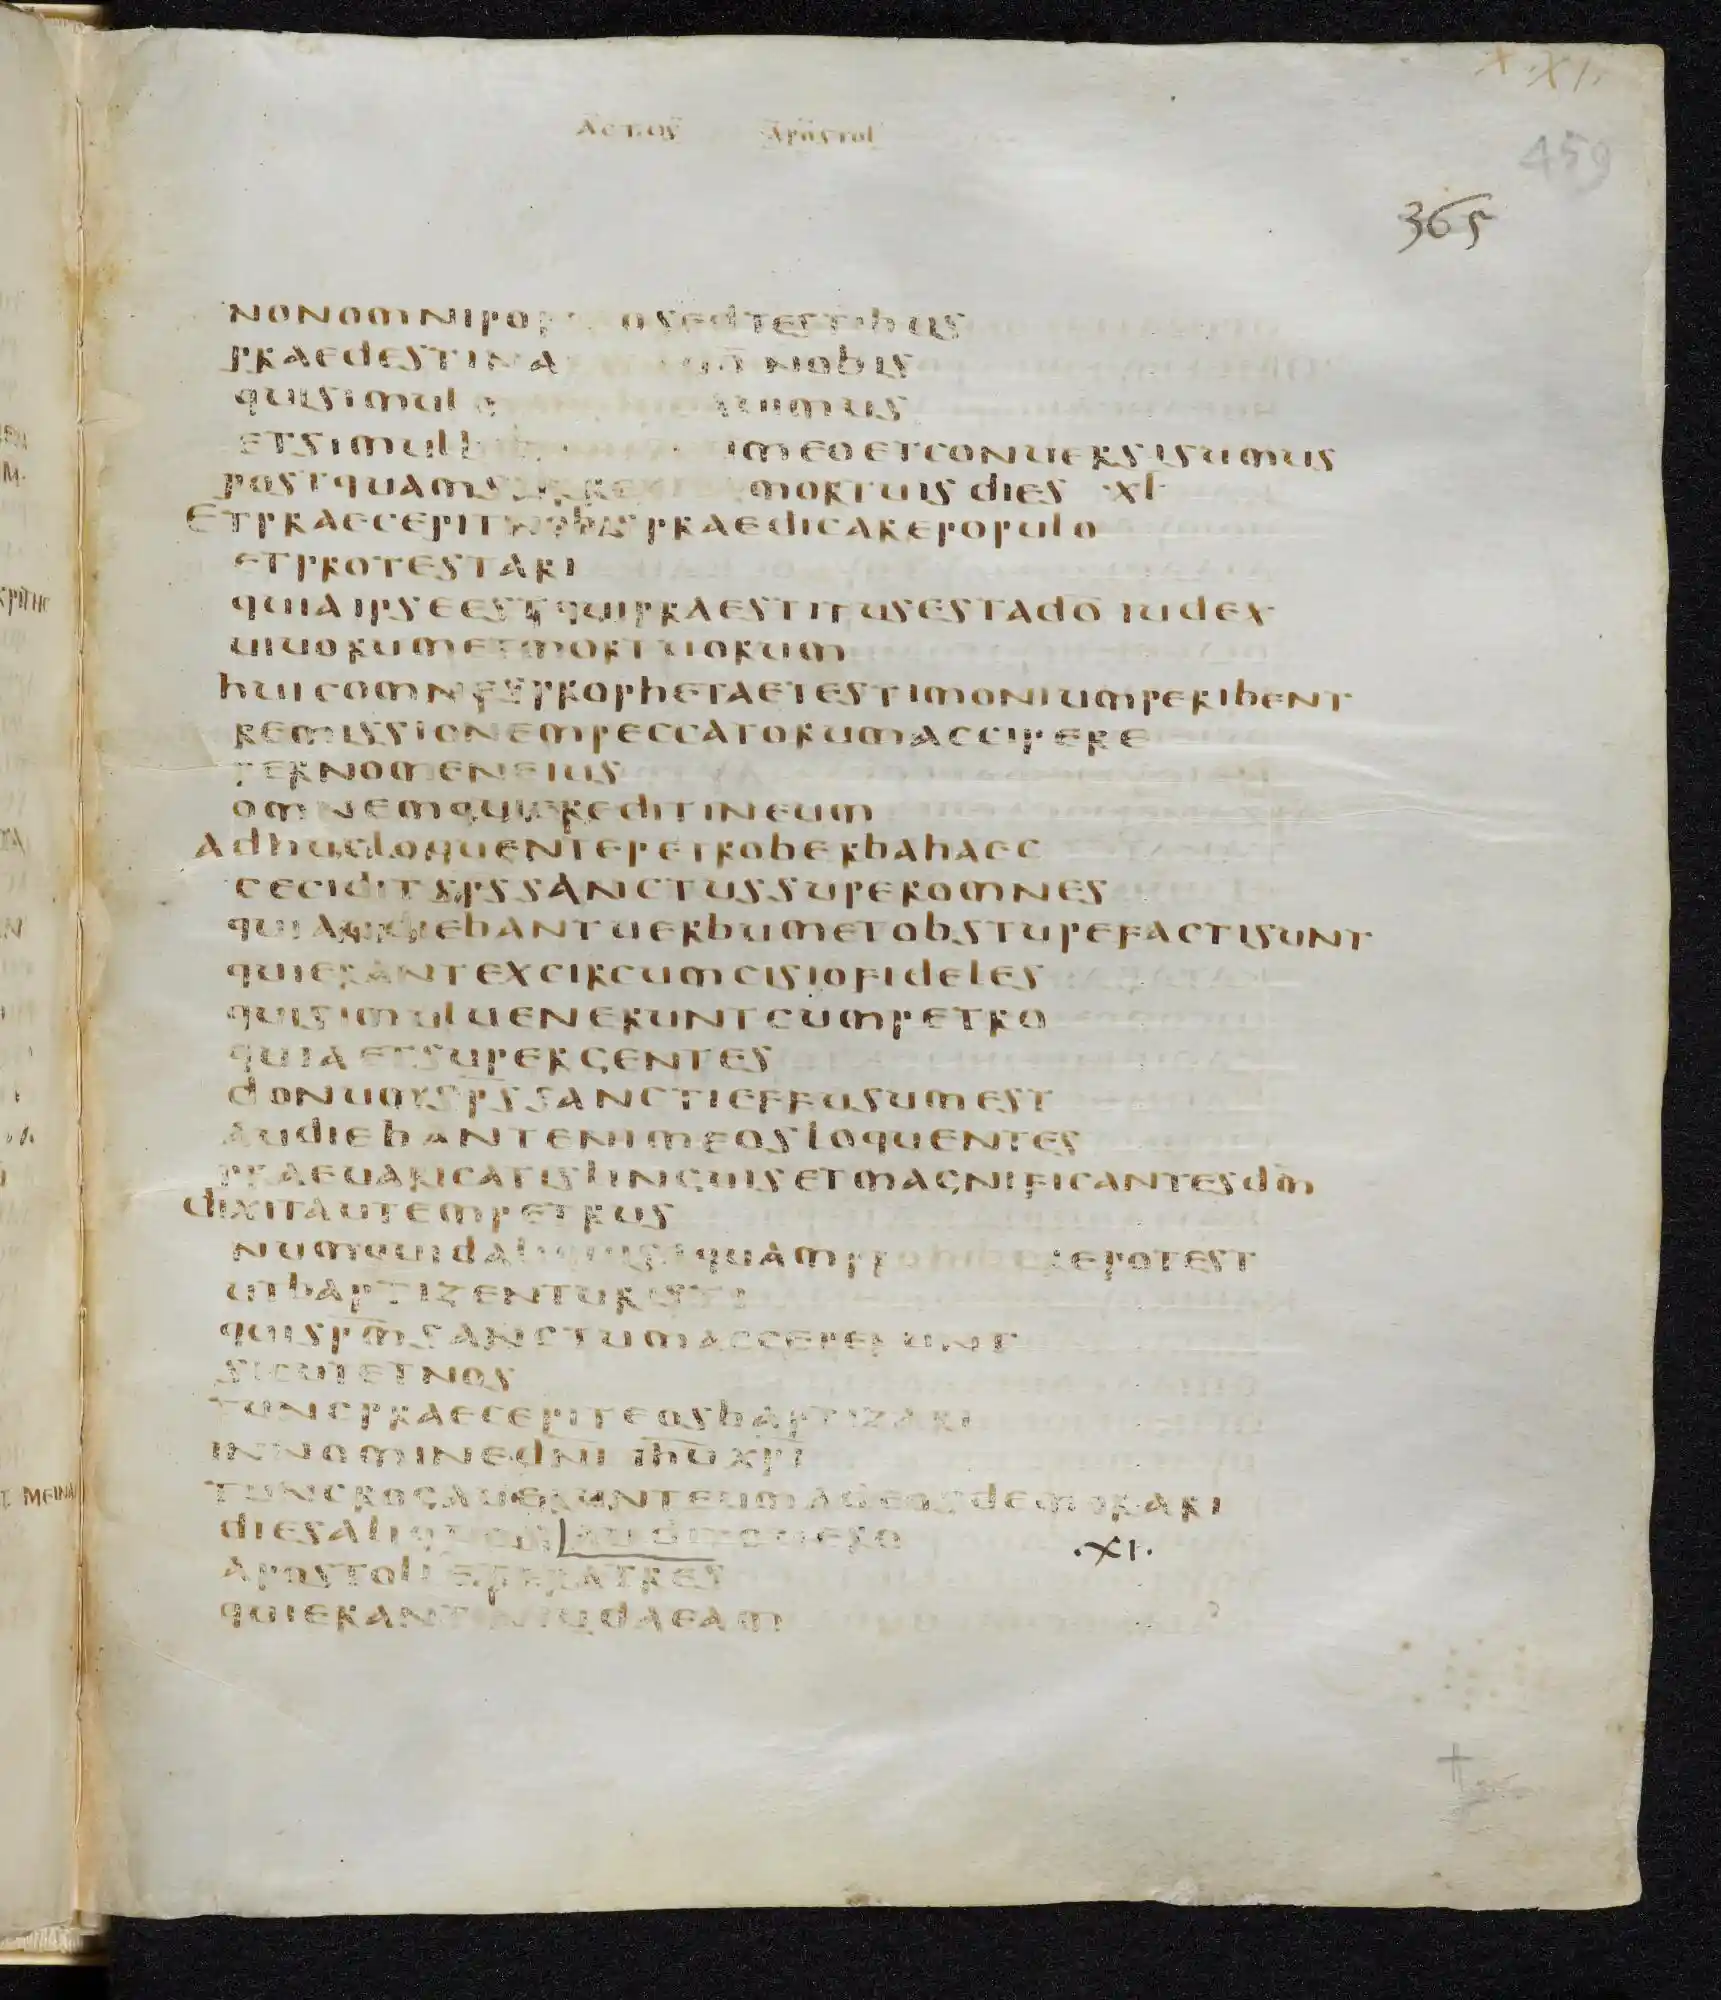 X·XI·
459
ACTOS APOSTOL
365
NONOMNIPOP OSEDTESTIBUS
PRAEDESTINA NOBIS
QUISIMUL UIMUS
ETSIMUL IMEOETCONUERSISUMUS
POSTQUAMS MORTUIS DIES ·XL·
ETPRAECEPITNOBISPRAEDICAREPOPULO
ETPROTESTARI
QUIAIPSEEST QUIPRAESTITUSESTADŌ IUDEX
UIUORUMETMORTUORUM
HUICOMNESPROPHETAETESTIMONIUMPERIBENT
REMISSIONEMPECCATORUMACCIPERE
PERNOMENEIUS
OMNEMQUICREDITINEUM
ADHUCLOQUENTEPETROBERBAHAEC
CECIDITSPSSANCTUSSUPEROMNES
QUIAUDIEBANTUERBUMETOBSTUPEFACTISUNT
QUIERANTEXCIRCUMCISIOFIDELES
QUISIMULUENERUNTCUMPETRO
QUIAETSUPERGENTES
DONUM SP̅SSANCTIEFFUSUMEST
AUDIEBANTENIMEOSLOQUENTES
PRAEUARICATISLINGUISETMAGNIFICANTESDM̅
DIXITAUTEMPETRUS
NUMQUIDALIQUIS AQUAMPROHIBEREPOTEST
UTBAPTIZENTURISTI
QUISPM̅SANCTUMACCEPERUNT
SICUTETNOS
TUNCPRAECEPITEOSBAPTIZARI
INNOMINEDN̅I IHU̅XPI̅
TUNCROGAUERUNTEUMADEOSDEMORARI
DIESALIQUOS UERO ·XI·
APOSTOLI ETFRATRES
QUIERANTINIUDAEAM